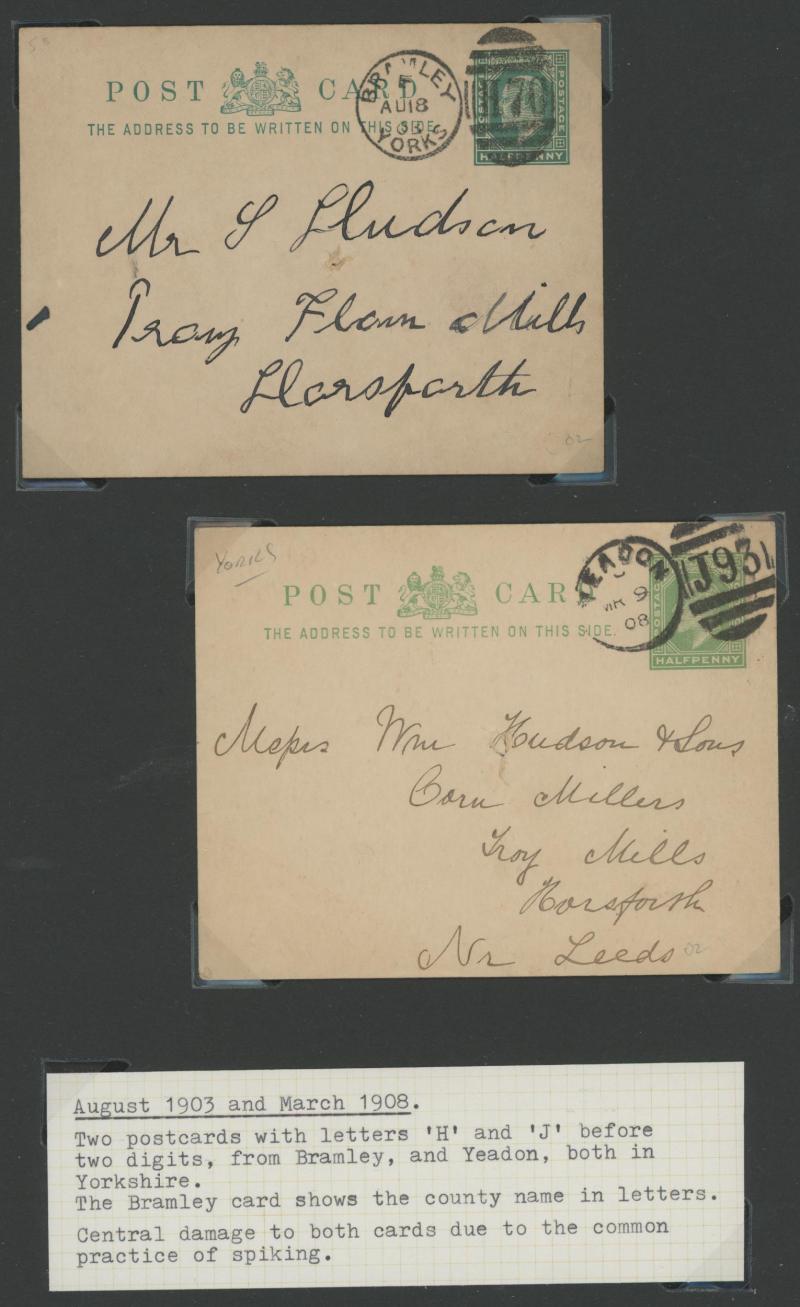 58
POST CARD
THE ADDRESS TO BE WRITTEN ON THIS SIDE.
BRAMLEY
F
AU 18
03
YORKS
H70
POSTAGE
HALFPENNY
Mr S Hudson
Troy Flour Mills
Horsforth
02
YORKS
POST CARD
THE ADDRESS TO BE WRITTEN ON THIS SIDE.
YEADON
MR 9
08
J93
POSTAGE
HALFPENNY
Messrs Wm Hudson & Sons
Corn Millers
Troy Mills
Horsforth
Nr Leeds
02
August 1903 and March 1908.
Two postcards with letters 'H' and 'J' before
two digits, from Bramley, and Yeadon, both in
Yorkshire.
The Bramley card shows the county name in letters.
Central damage to both cards due to the common
practice of spiking.